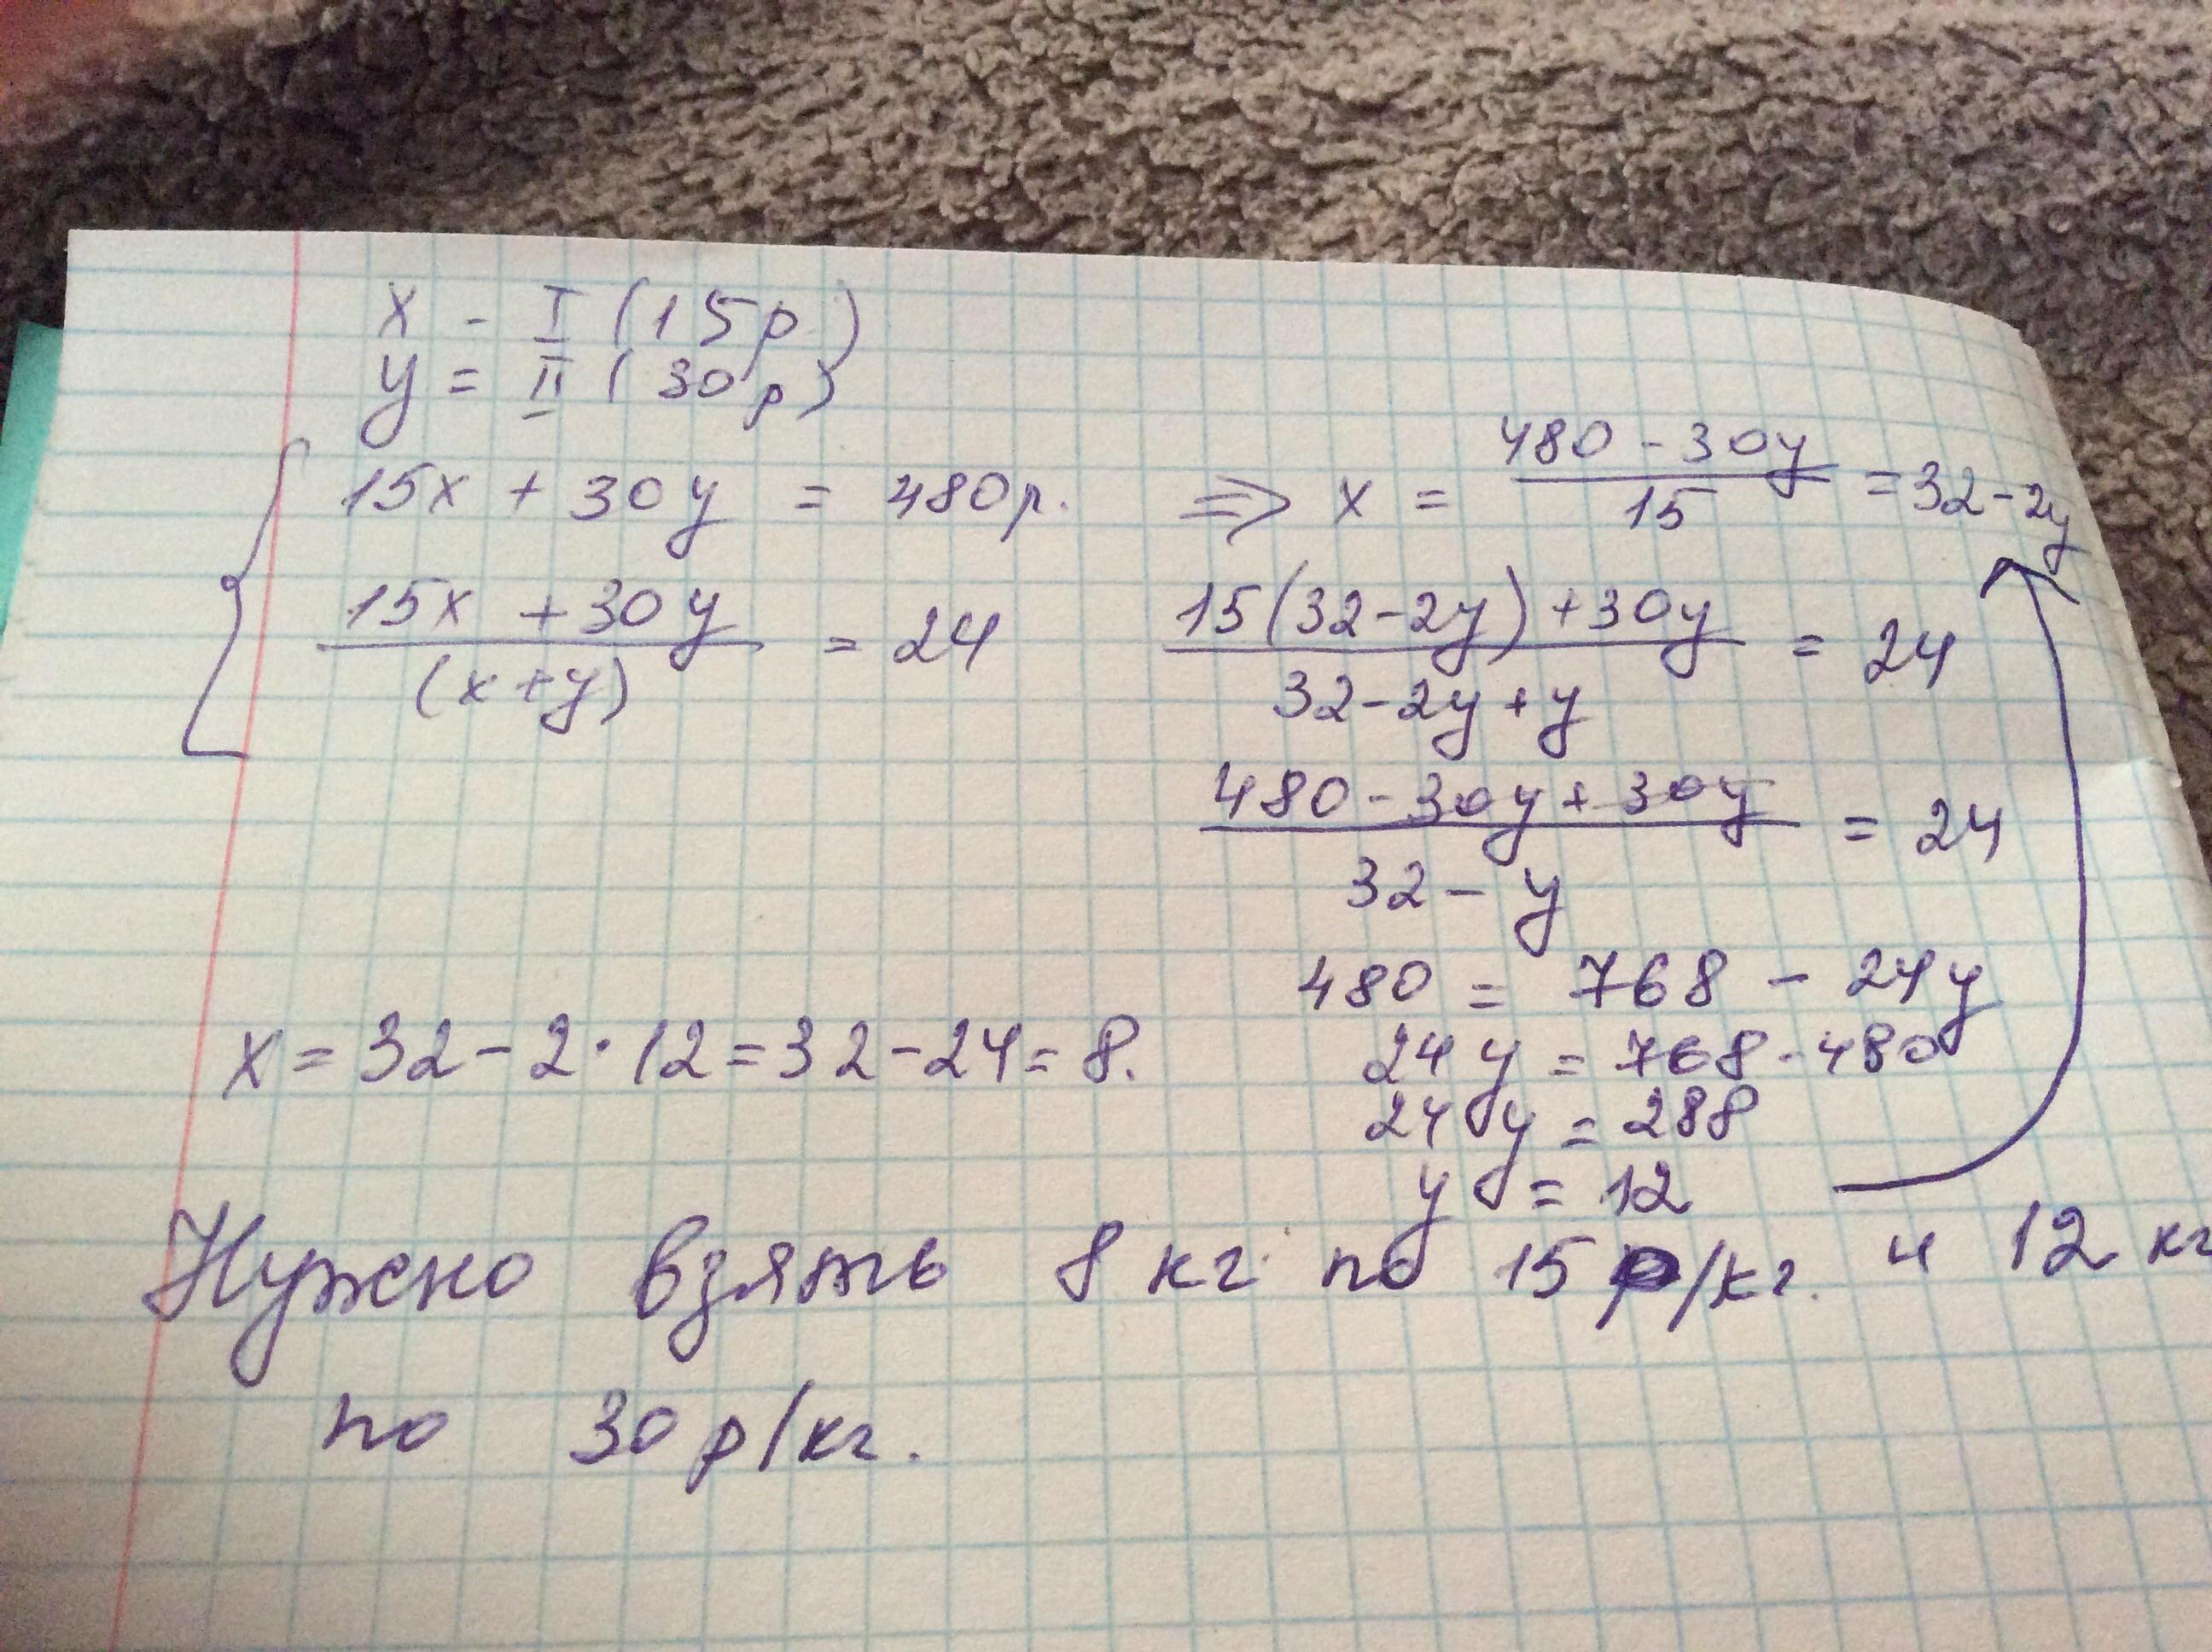 x - I (15р)
y = II (30р)
15x + 30y = 480р. ⇒ x = (480 - 30y)/15 = 32 - 2y
(15x + 30y)/(x+y) = 24
(15(32-2y) + 30y)/(32-2y+y) = 24
(480 - 30y + 30y)/(32 - y) = 24
480 = 768 - 24y
24y = 768 - 480
24y = 288
y = 12
x = 32 - 2·12 = 32 - 24 = 8.
Нужно взять 8 кг по 15 р/кг. и 12 кг
по 30 р/кг.